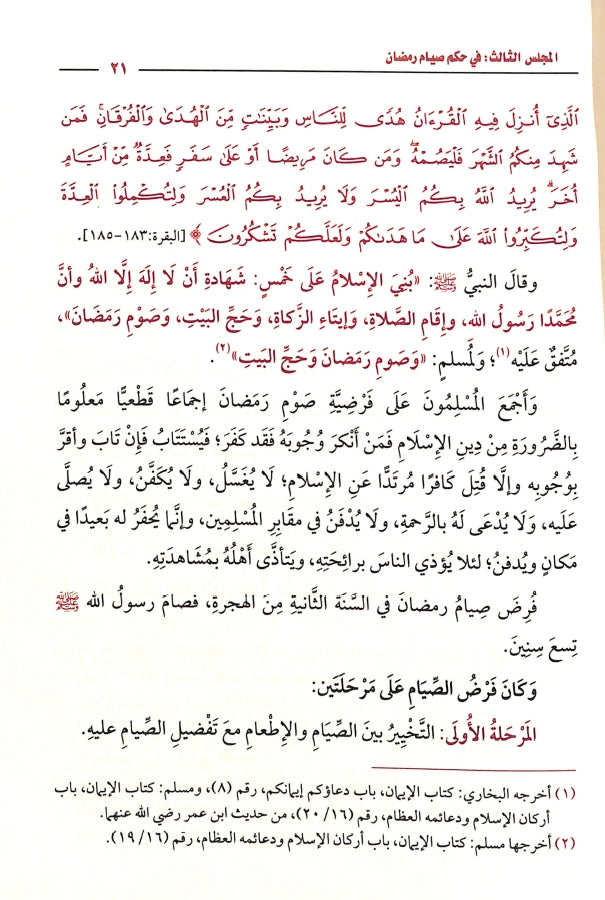 المجلس الثالث: في حكم صيام رمضان
٢١
ٱلَّذِىٓ أُنزِلَ فِيهِ ٱلْقُرْءَانُ هُدًى لِّلنَّاسِ وَبَيِّنَٰتٍ مِّنَ ٱلْهُدَىٰ وَٱلْفُرْقَانِ ۚ فَمَن
شَهِدَ مِنكُمُ ٱلشَّهْرَ فَلْيَصُمْهُ ۖ وَمَن كَانَ مَرِيضًا أَوْ عَلَىٰ سَفَرٍ فَعِدَّةٌ مِّنْ أَيَّامٍ
أُخَرَ ۗ يُرِيدُ ٱللَّهُ بِكُمُ ٱلْيُسْرَ وَلَا يُرِيدُ بِكُمُ ٱلْعُسْرَ وَلِتُكْمِلُوا۟ ٱلْعِدَّةَ
وَلِتُكَبِّرُوا۟ ٱللَّهَ عَلَىٰ مَا هَدَىٰكُمْ وَلَعَلَّكُمْ تَشْكُرُونَ ﴾ [البقرة:١٨٣-١٨٥].
وقالَ النبيُّ ﷺ: «بُنِيَ الإِسْلامُ عَلَى خَمْسٍ: شَهَادَةِ أَنْ لَا إِلَهَ إِلَّا اللهُ وأنَّ
مُحَمَّدًا رَسُولُ الله، وإِقَامِ الصَّلاةِ، وَإيتَاءِ الزَّكاةِ، وَحَجِّ البَيْتِ، وَصَوْمِ رَمَضَانَ»،
مُتَّفقٌ عَلَيْه(١)؛ وَلُمسلمٍ: «وَصَومِ رَمَضانَ وَحَجِّ البَيتِ»(٢).
وَأَجْمَعَ المُسْلِمُونَ عَلَى فَرْضِيَّةِ صَوْمِ رَمَضَانَ إجمَاعًا قَطْعيًّا مَعلُومًا
بِالضَّرُورَةِ مِنْ دِينِ الإِسْلَامِ فَمَنْ أَنْكرَ وُجُوبَهُ فَقَد كَفَرَ؛ فَيُسْتَتَابُ فَإِنْ تَابَ وأقرَّ
بِوُجُوبِه وإلَّا قُتِلَ كَافرًا مُرتَدًّا عَنِ الإسْلامِ؛ لَا يُغَسَّلُ، وَلَا يُكَفَّنُ، وَلَا يُصلَّى
عَلَيه، وَلَا يُدْعَى لَهُ بالرَّحمةِ، ولَا يُدْفَنُ في مقَابرِ المُسْلِمِين، وإنَّما يُحفَرُ له بَعيدًا في
مَكانٍ ويُدفنُ؛ لئلا يُؤذي الناسَ برائِحَتِهِ، ويَتأذَّى أَهْلُهُ بمُشَاهدَتِهِ.
فُرِضَ صِيامُ رمضانَ في السَّنَة الثَّانيةِ مِنَ الهجرةِ، فصامَ رسولُ الله ﷺ
تِسعَ سِنِينَ.
وَكَانَ فَرْضُ الصِّيَامِ عَلَى مَرْحلَتَين:
المَرْحلةُ الأُولَى: التَّخْيِيرُ بينَ الصِّيَامِ والإِطْعامِ مَعَ تَفْضيلِ الصِّيامِ عليهِ.
(١) أخرجه البخاري: كتاب الإيمان، باب دعاؤكم إيمانكم، رقم (٨)، ومسلم: كتاب الإيمان، باب
أركان الإسلام ودعائمه العظام، رقم (١٦/ ٢٠)، من حديث ابن عمر رضي الله عنهما.
(٢) أخرجها مسلم: كتاب الإيمان، باب أركان الإسلام ودعائمه العظام، رقم (١٦/ ١٩).